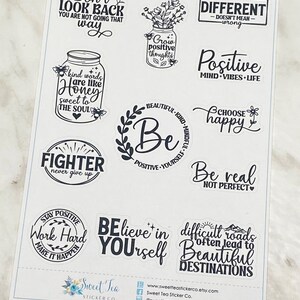 LOOK BACK
YOU ARE NOT GOING THAT
way
Grow
positive
thoughts
DIFFERENT
DOESN'T MEAN
wrong
Kind words
are like
Honey
sweet to
THE SOUL
Positive
MIND • VIBES • LIFE
BEAUTIFUL • KIND • MINDFUL
Be
POSITIVE • YOURSELF
CHOOSE
happy
FIGHTER
never give up
Be real
NOT PERFECT
STAY POSITIVE
Work Hard
MAKE IT HAPPEN
BElieve in
YOUrself
difficult roads
often lead to
Beautiful
DESTINATIONS
Sweet Tea
STICKER CO.
www.sweetteastickerco.etsy.com
Sweet Tea Sticker Co.